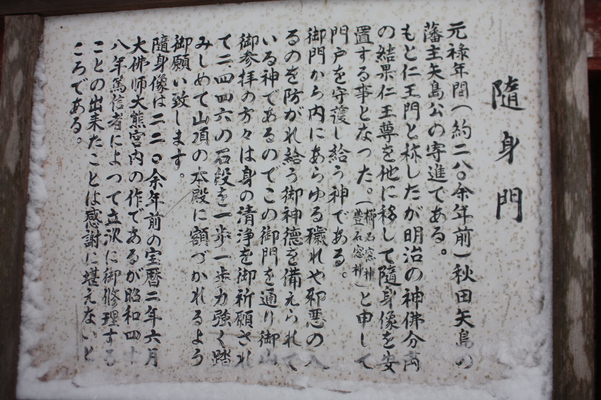 隨身門
元禄年間（約二八〇余年前）秋田矢島の
藩主矢島公の寄進である。
もと仁王門と称したが明治の神佛分离
の結果仁王尊を他に移して隨身像を安
置する事となった。（櫛石窓神 豊石窓神）と申して
門戸を守護し給う神である。
御門から内にあらゆる穢れや邪悪の入
るのを防がれ給う御神徳を備えられて
いる神であるのでこの御門を通り御山
御参拝の方々は身の清浄を御祈願され
て二四四六の石段を一歩一歩力強く踏
みしめて山頂の本殿に額づかれるよう
御願い致します。
隨身像は二二〇余年前の宝暦二年六月
大佛師大熊宮内の作であるが昭和四十
八年篤信者によって立派に御修理する
ことの出来たことは感謝に堪えないと
ころである。